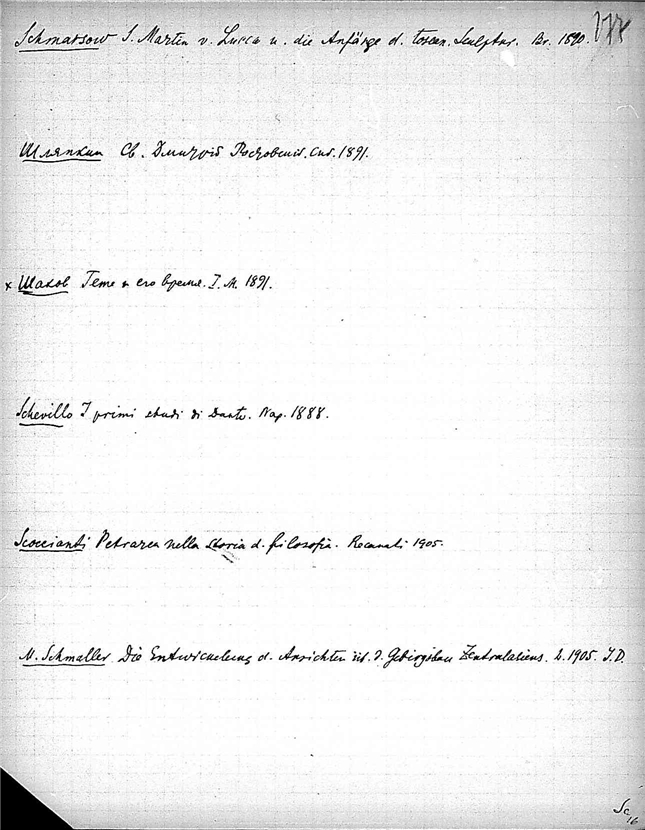 Schmarsow S. Martin v. Lucca u. die Anfänge d. toscan. Sculptur. Br. 1890.
Шляпкин Св. Дмитрій Ростовскій. Спб. 1891.
x Шахов Гете и его время. I. М. 1891.
Scherillo I primi studi di Dante. Nap. 1888.
Scoccianti Petrarca nella storia d. filosofia. Recanati 1905.
M. Schmaller Die Entwickelung d. Ansichten üb. d. Gebirgsbau Zentralasiens. L. 1905. I.D.
Sc
16